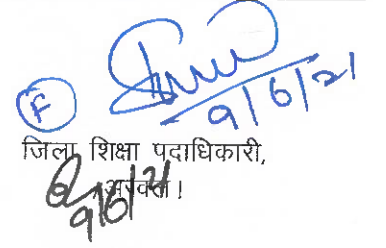 F
9/6/21
जिला शिक्षा पदाधिकारी,
अरवल।
9/6/21